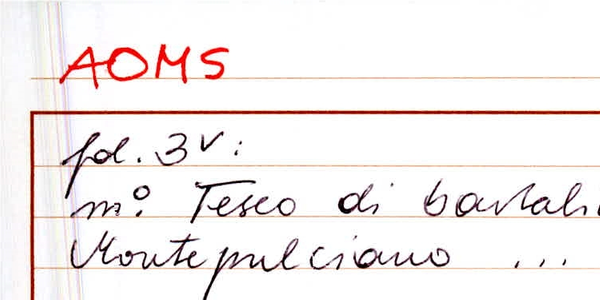 AOMS
fol. 3v:
m.o Teseo di bartali
Montepulciano ...